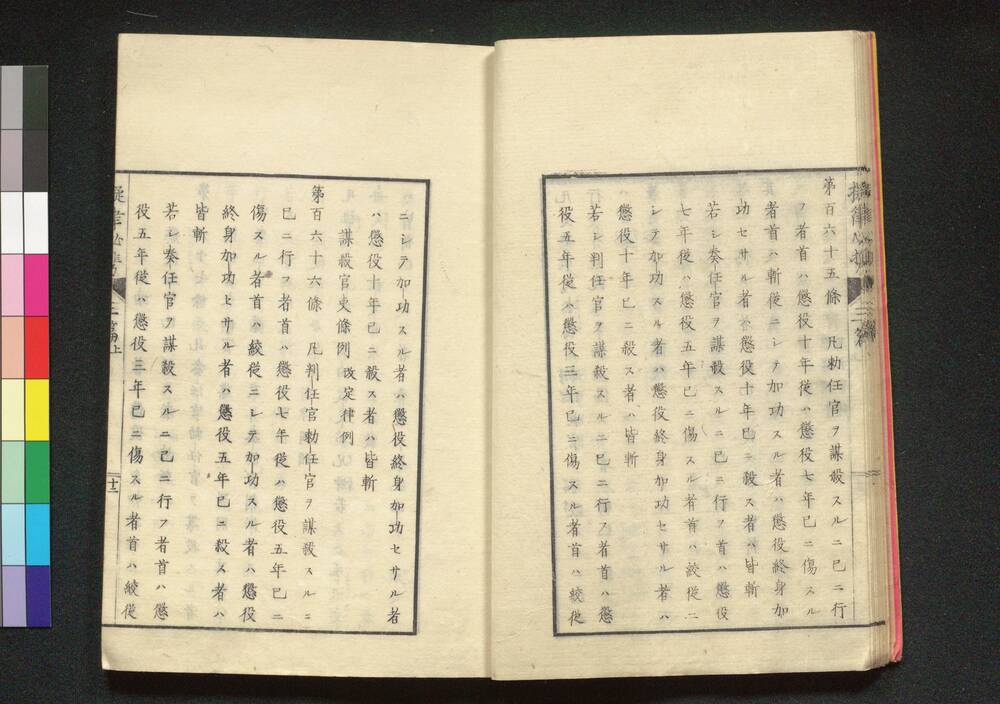 第百六十五條 凡勅任官ヲ謀殺スルニ已ニ行
フ者首ハ懲役十年從ハ懲役七年已ニ傷スル
者首ハ斬從ニシテ加功スル者ハ懲役終身加
功セサル者ハ懲役十年已ニ殺ス者ハ皆斬
若シ奏任官ヲ謀殺スルニ已ニ行フ者首ハ懲役
七年從ハ懲役五年已ニ傷スル者首ハ絞從ニ
シテ加功スル者ハ懲役終身加功セサル者ハ
懲役十年已ニ殺ス者ハ皆斬
若シ判任官ヲ謀殺スルニ已ニ行フ者首ハ懲
役五年從ハ懲役三年已ニ傷スル者首ハ絞從
ニシテ加功スル者ハ懲役終身加功セサル者
ハ懲役十年已ニ殺ス者ハ皆斬
謀殺官吏條例 改定律例
第百六十六條 凡判任官勅任官ヲ謀殺スルニ
已ニ行フ者首ハ懲役七年從ハ懲役五年已ニ
傷スル者首ハ絞從ニシテ加功スル者ハ懲役
終身加功セサル者ハ懲役五年已ニ殺ス者ハ
皆斬
若シ奏任官ヲ謀殺スルニ已ニ行フ者首ハ懲
役五年從ハ懲役三年已ニ傷スル者首ハ絞從
三篇上
十二